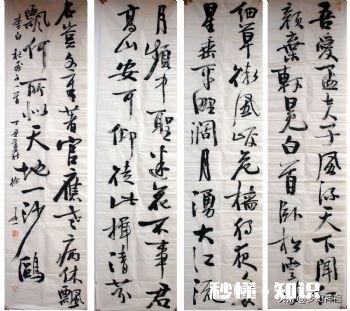 吾愛孟夫子風流天下聞紅
顏棄軒冕白首卧松雲
細草微風岸危檣獨夜舟
星垂平野闊月湧大江流
月頻中聖迷花不事君
高山安可仰徒此揖清芬
名豈文章著官應老病休飄
飄何所似天地一沙鷗
李白杜甫詩二首
秒懂·知识